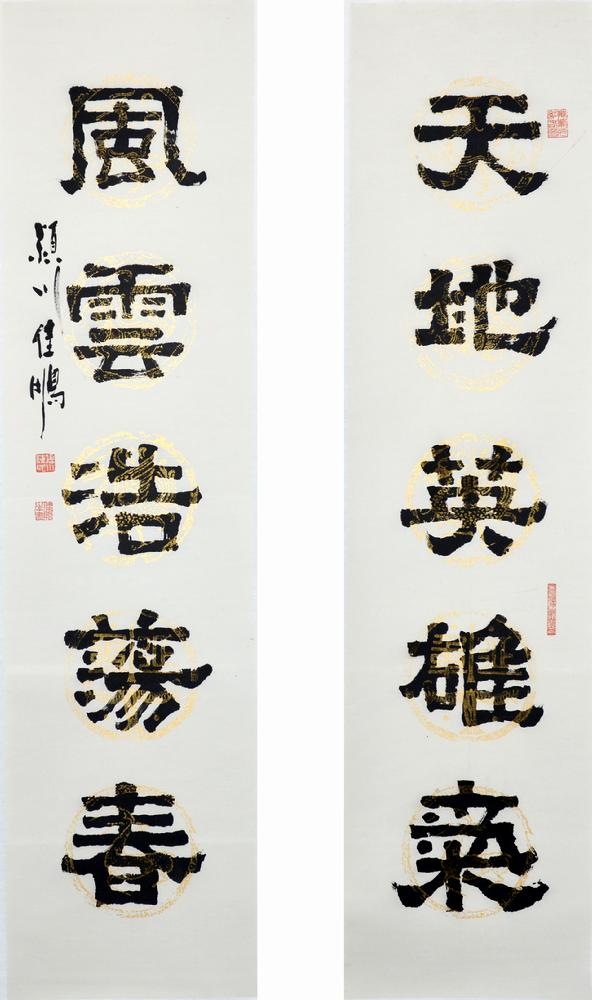 天地英雄氣
風雲浩蕩春
潁川佳鵬